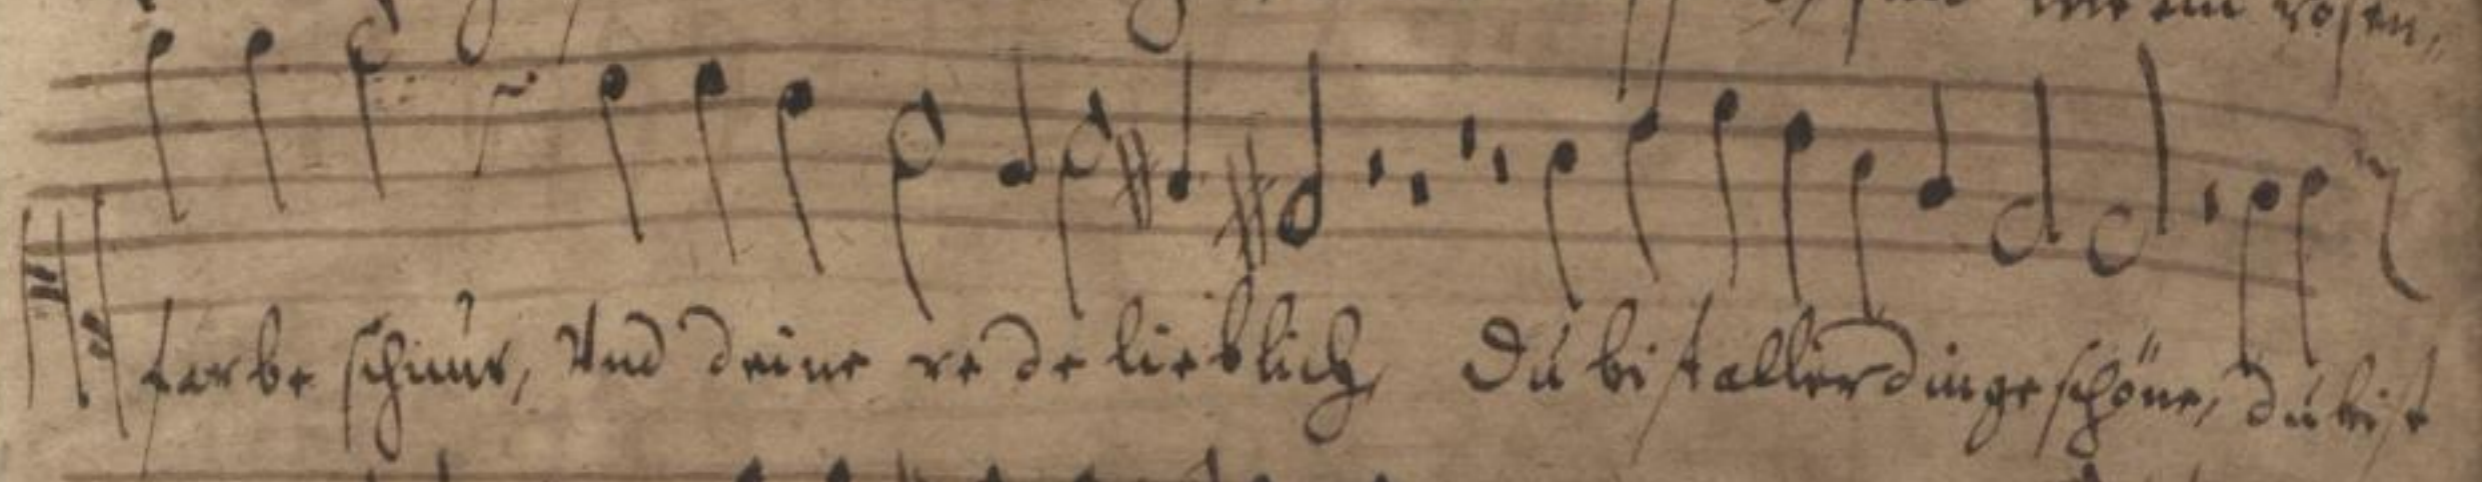 wie ein rosen,
farbe schnur, Und deine rede lieblich, Du bist allerdinge schöne, du bist